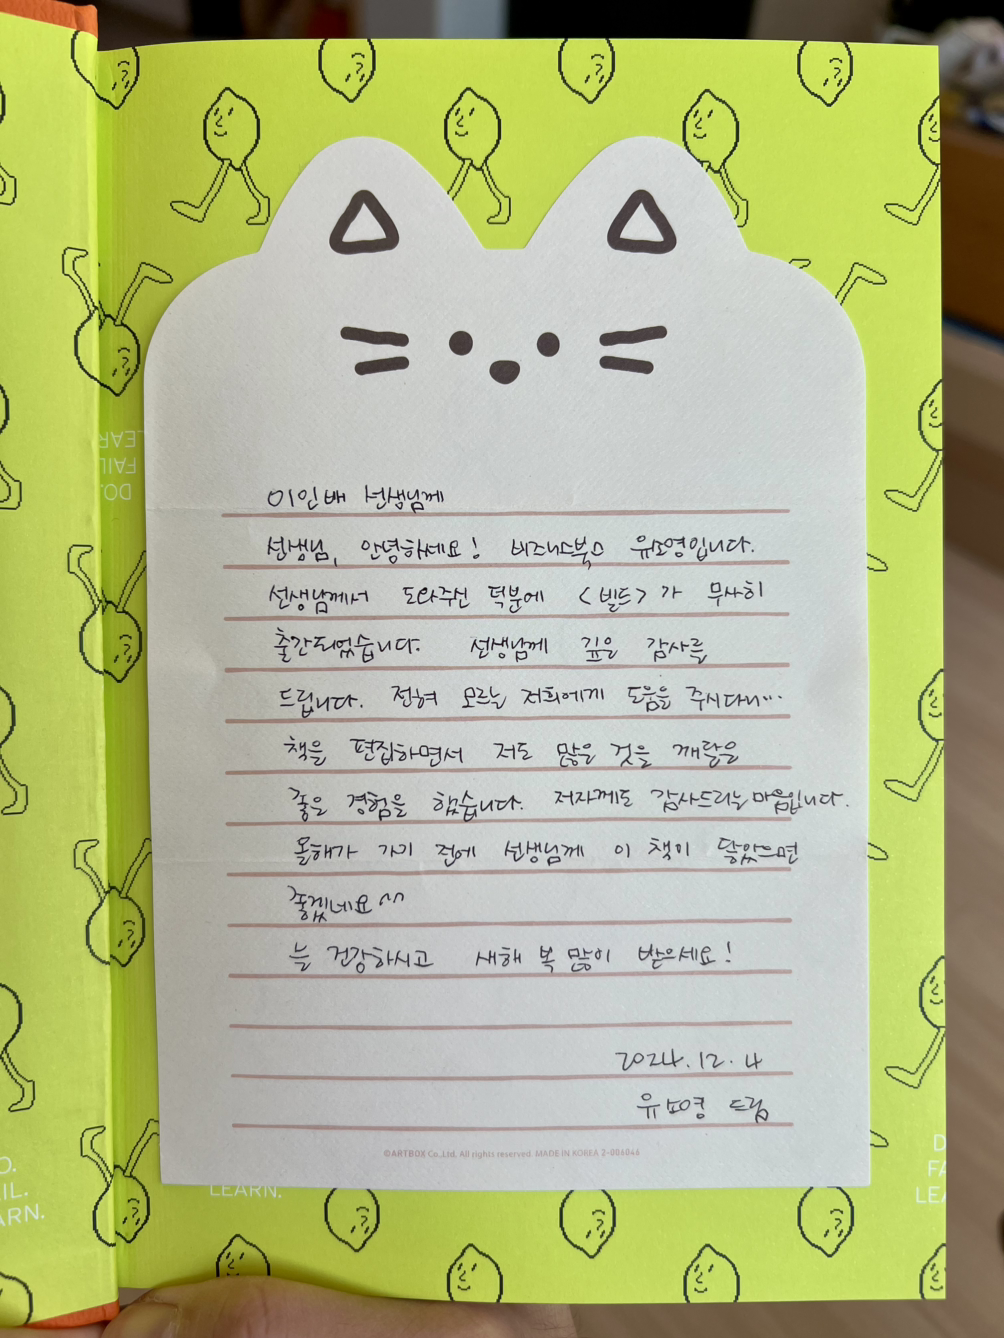 이인배 선생님께
선생님, 안녕하세요! 비즈니스북스 유소영입니다.
선생님께서 도와주신 덕분에 <빌드>가 무사히
출간되었습니다. 선생님께 깊은 감사를
드립니다. 전혀 모르는 저희에게 도움을 주시다니...
책을 편집하면서 저도 많은 것을 깨달은
좋은 경험을 했습니다. 저자께도 감사드리는 마음입니다.
올해가 가기 전에 선생님께 이 책이 닿았으면
좋겠네요^^
늘 건강하시고 새해 복 많이 받으세요!
2024.12.4
유소영 드림
©ARTBOX Co.,Ltd. All rights reserved. MADE IN KOREA 2-006046
LEARN.
FAIL
DO.
LEARN.